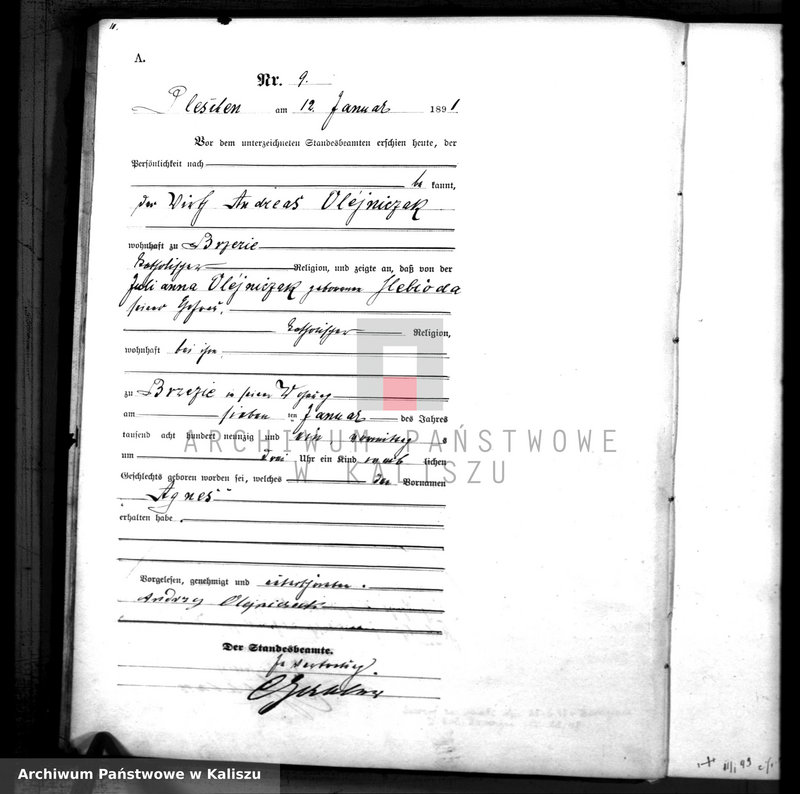 A.
Nr. 9.
Pleschen am 12. Januar 1891
Vor dem unterzeichneten Standesbeamten erschien heute, der
Persönlichkeit nach
be kannt,
der Wirth Andreas Olejniczak
wohnhaft zu Brzezie
katholischer Religion, und zeigte an, daß von der
Julianna Olejniczak geborenen Hlebioda
seiner Ehefrau,
katholischer Religion,
wohnhaft bei ihm,
zu Brzezie in seiner Wohnung
am sieben ten Januar des Jahres
tausend acht hundert neunzig und ein Vormittag s
um drei Uhr ein Kind weib lichen
Geschlechts geboren worden sei, welches den Vornamen
Agnes
erhalten habe.
Vorgelesen, genehmigt und unterschrieben.
Andrzej Olejniczak
Der Standesbeamte.
In Vertretung.
ARCHIWUM PAŃSTWOWE
W KALISZU
Archiwum Państwowe w Kaliszu